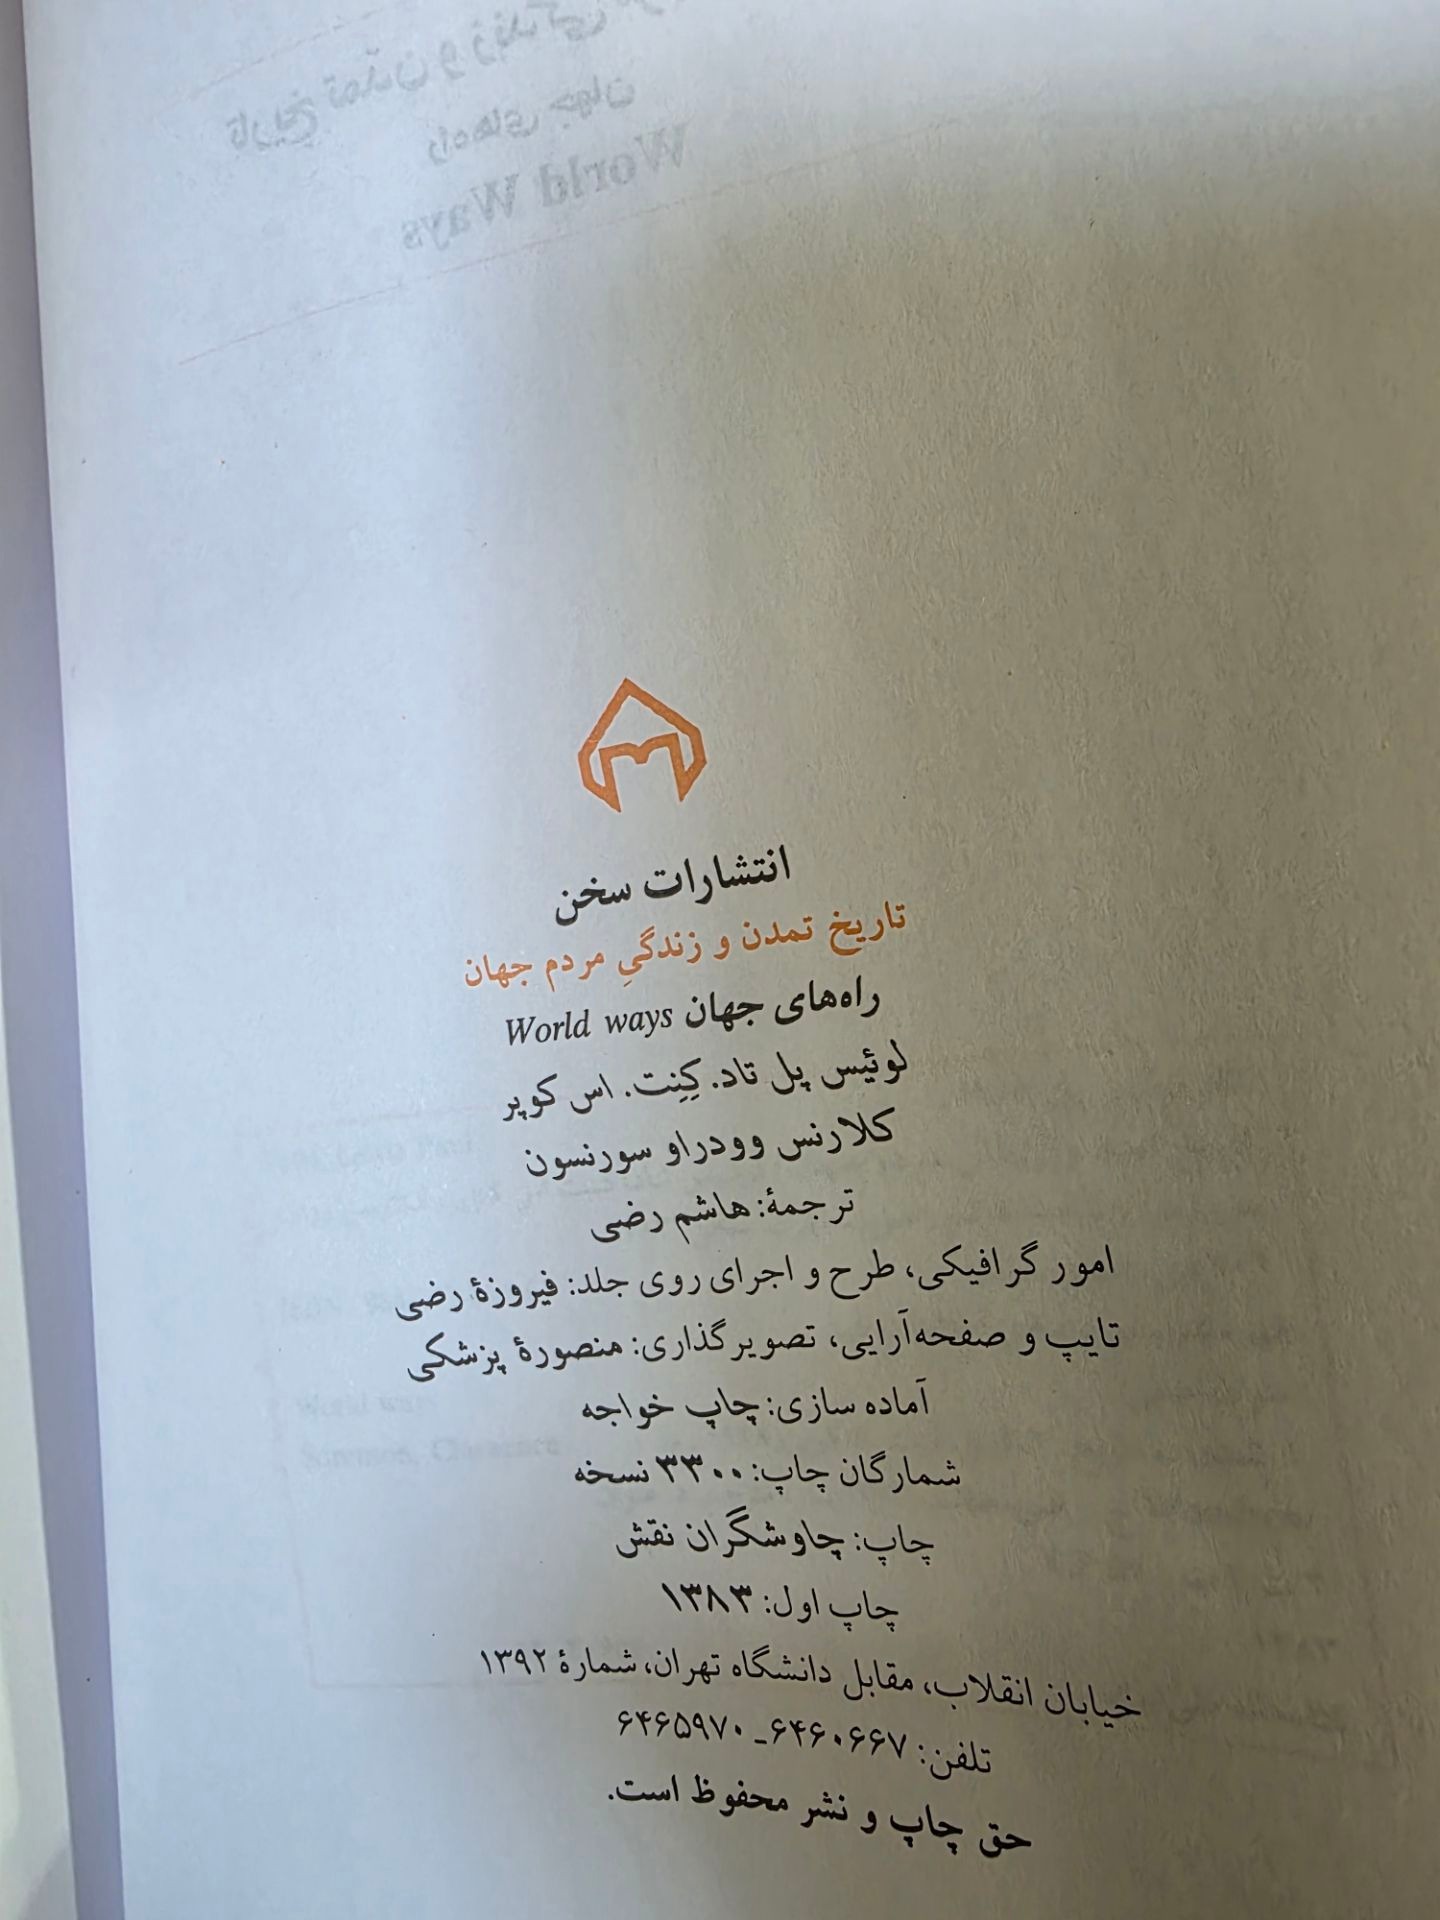 World Ways
انتشارات سخن
تاریخ تمدن و زندگیِ مردم جهان
راه‌های جهان World ways
لوئیس پل تاد. کِنِت. اس کوپر
کلارنس وودراو سورنسون
ترجمهٔ: هاشم رضی
امور گرافیکی، طرح و اجرای روی جلد: فیروزهٔ رضی
تایپ و صفحه‌آرایی، تصویرگذاری: منصورهٔ پزشکی
آماده سازی: چاپ خواجه
شمارگان چاپ: ۳۳۰۰ نسخه
چاپ: چاوشگران نقش
چاپ اول: ۱۳۸۳
خیابان انقلاب، مقابل دانشگاه تهران، شمارهٔ ۱۳۹۲
تلفن: ۶۴۶۰۶۶۷ـ ۶۴۶۵۹۷۰
حق چاپ و نشر محفوظ است.